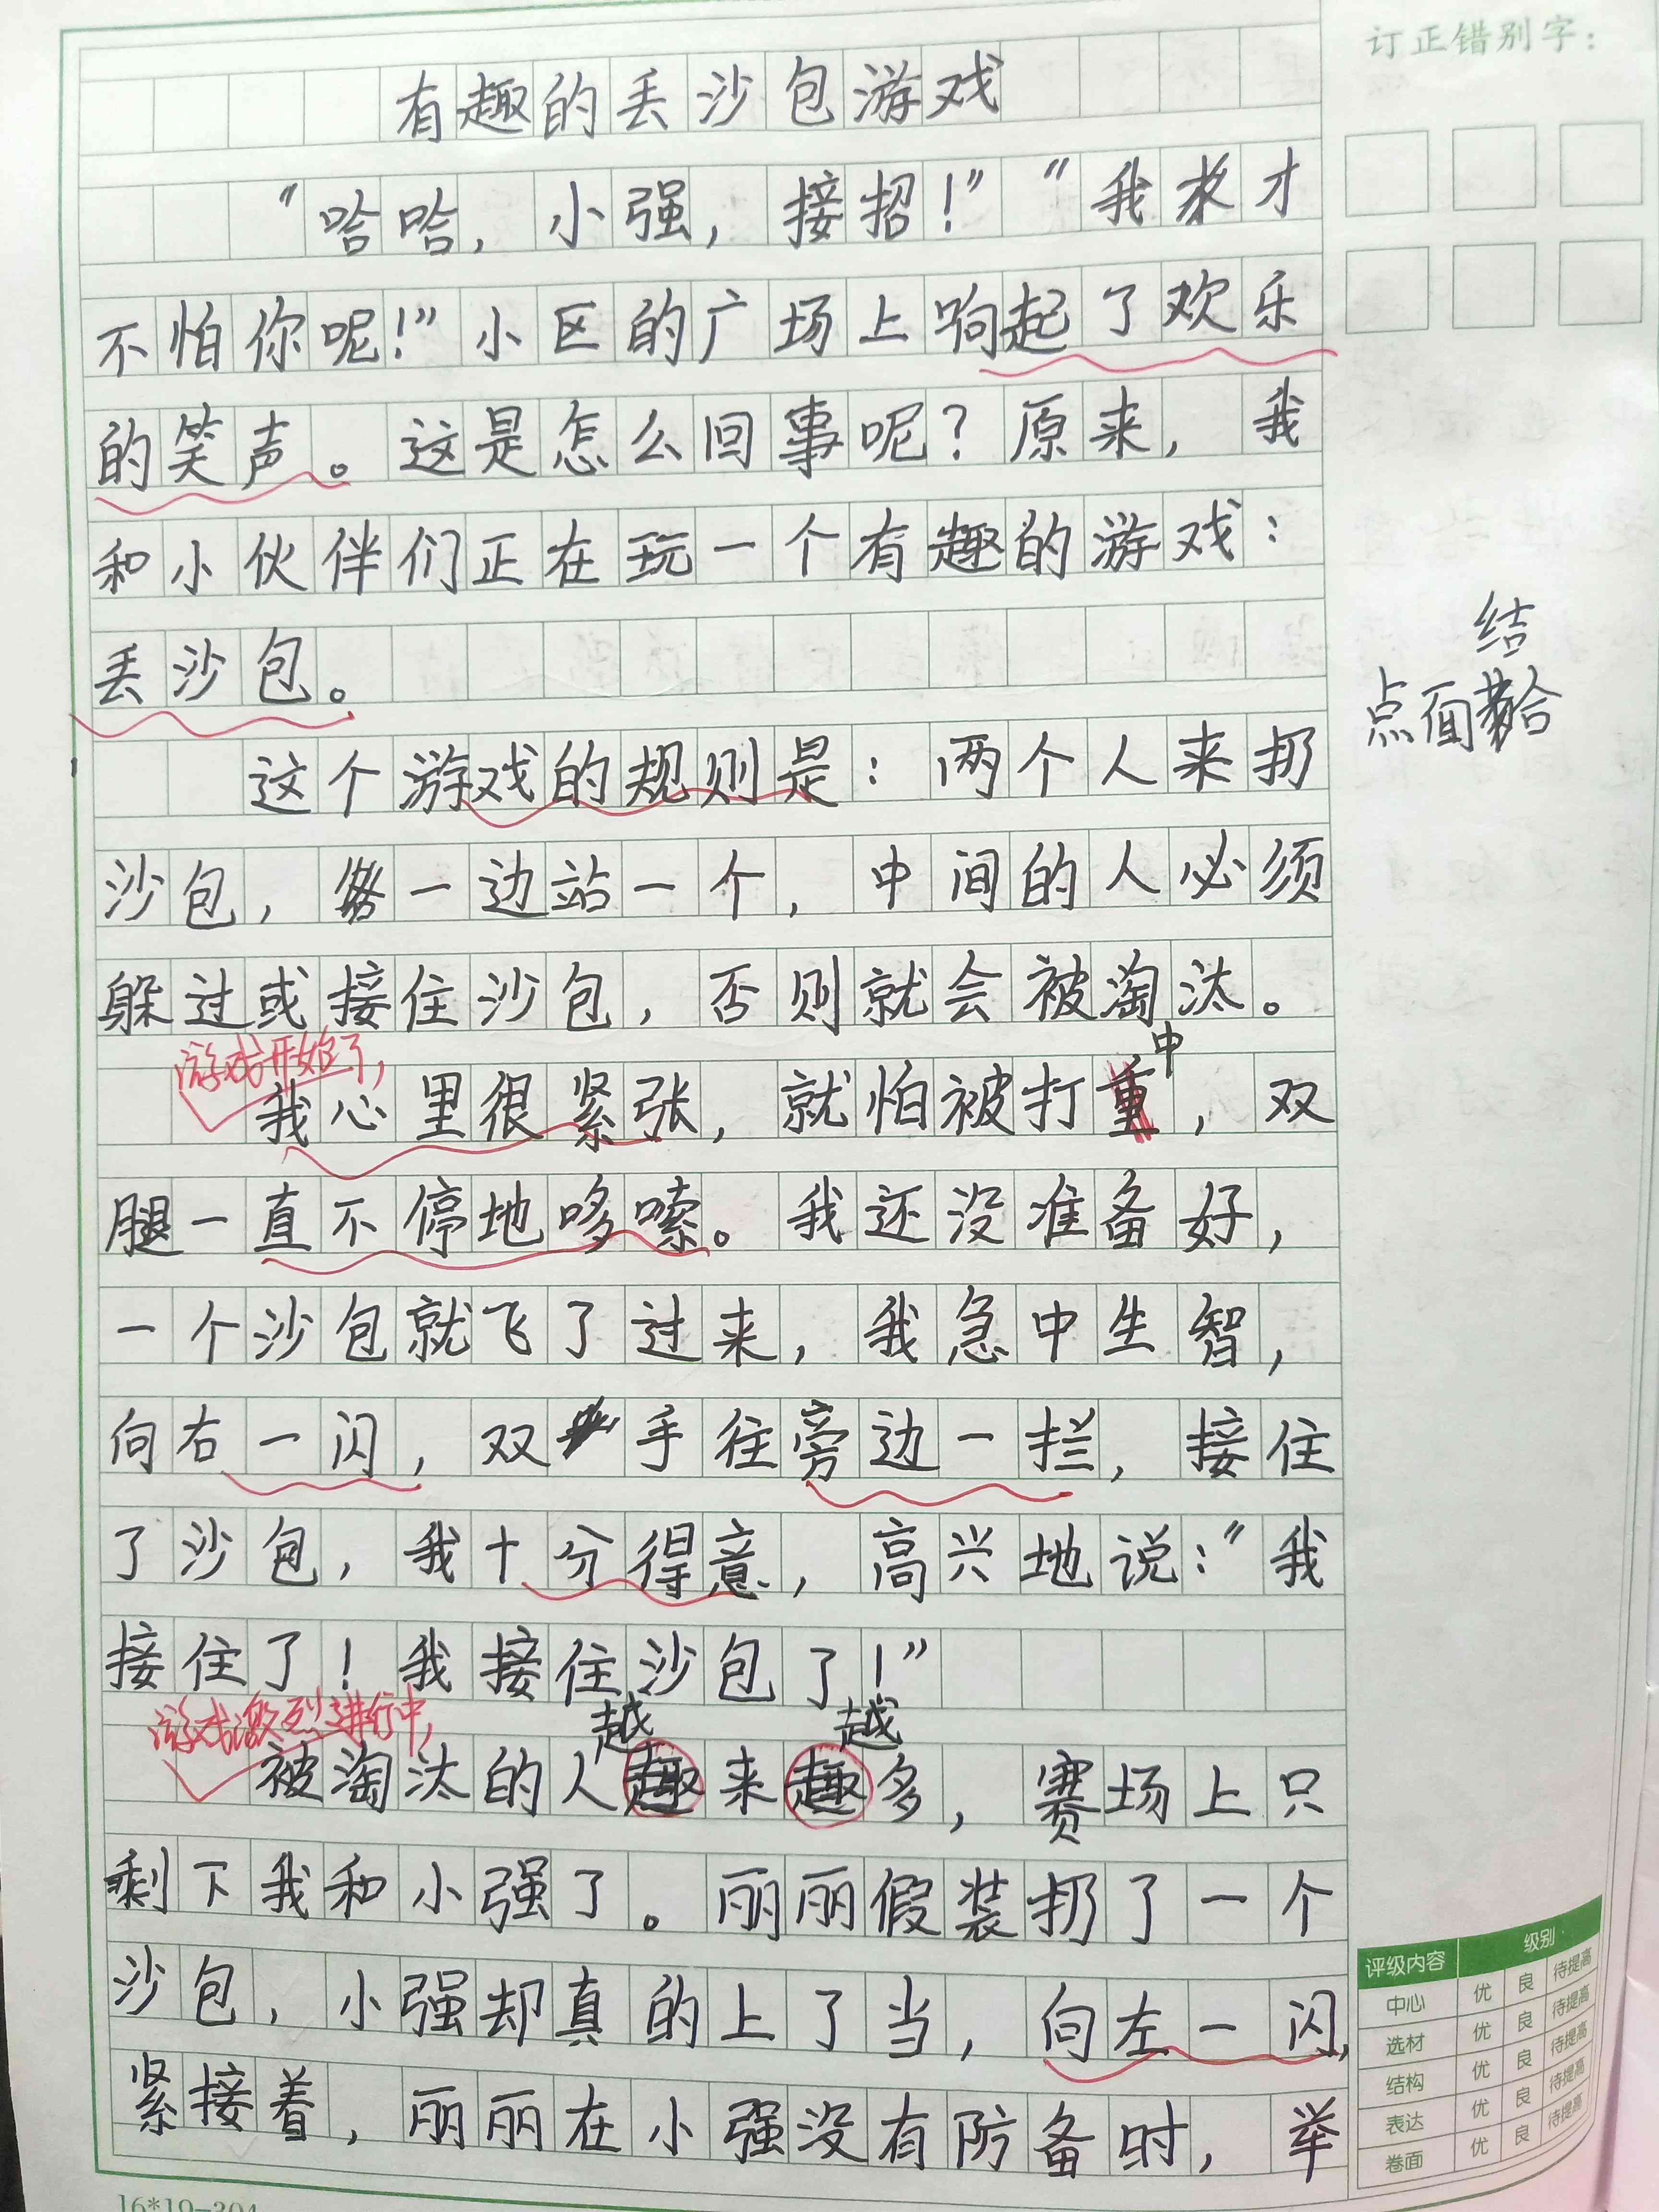 订正错别字：
有趣的丢沙包游戏
“哈哈，小强，接招！”“我才
不怕你呢！”小区的广场上响起了欢乐
的笑声。这是怎么回事呢？原来，我
和小伙伴们正在玩一个有趣的游戏：
丢沙包。
结
点面合
这个游戏的规则是：两个人来扔
沙包，各一边站一个，中间的人必须
躲过或接住沙包，否则就会被淘汰。
游戏开始了，
中
我心里很紧张，就怕被打重，双
腿一直不停地哆嗦。我还没准备好，
一个沙包就飞了过来，我急中生智，
向右一闪，双手往旁边一拦，接住
了沙包，我十分得意，高兴地说：“我
接住了！我接住沙包了！”
游戏激烈进行中，
越 越
被淘汰的人趣来趣多，赛场上只
剩下我和小强了。丽丽假装扔了一个
沙包，小强却真的上了当，向左一闪，
紧接着，丽丽在小强没有防备时，举
评级内容 级别
中心 优 良 待提高
选材 优 良 待提高
结构 优 良 待提高
表达 优 良 待提高
卷面 优 良 待提高
16*19=304